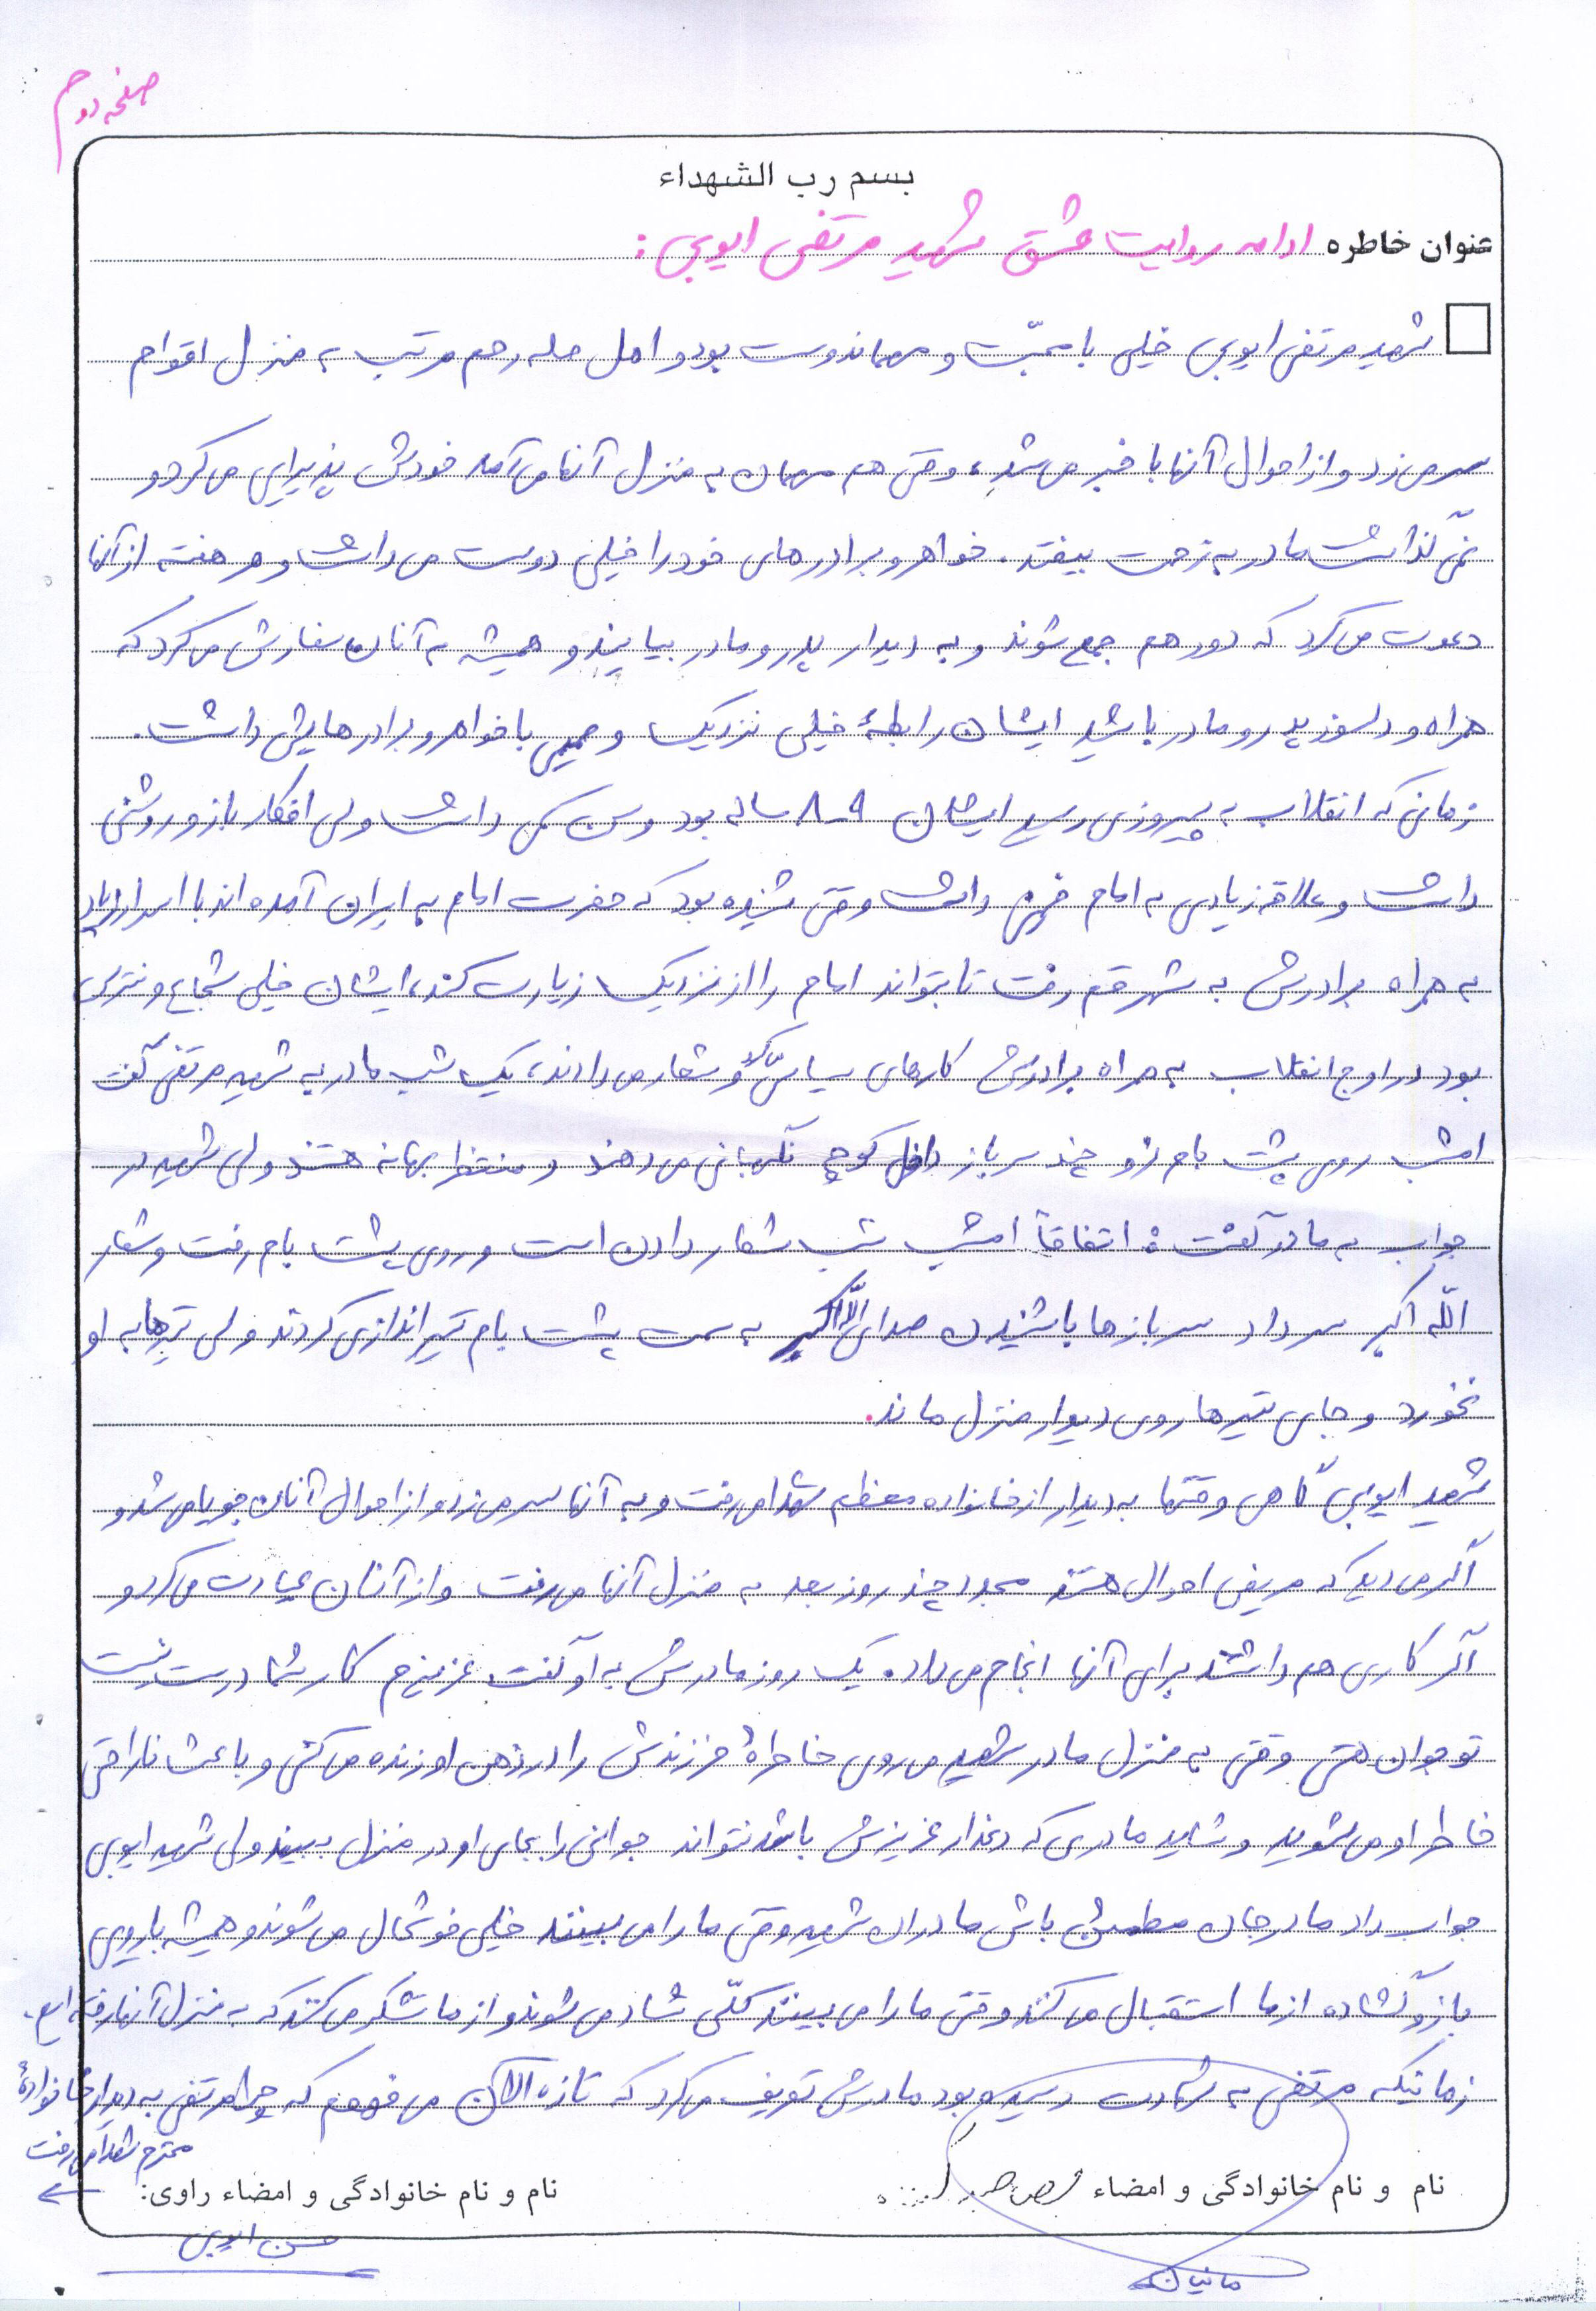 صفحه دوم
بسم رب الشهداء
عنوان خاطره ادامه روایت عشق شهید مرتضی ایوبی :
شهید مرتضی ایوبی خیلی با محبّت و مهماندوست بود و اهل صله رحم مرتب به منزل اقوام
سر می زد و از احوال آنها با خبر می شد، وقتی هم مهمان به منزل آنها می آمد خودش پذیرایی می کرد و
نمی گذاشت مادر به زحمت بیفتد. خواهر و برادرهای خود را خیلی دوست می داشت و هر هفته از آنها
دعوت می کرد که دور هم جمع شوند و به دیدار پدر و مادر بیایند و همیشه به آنان سفارش می کرد که
همراه و دلسوز پدر و مادر باشید ایشان رابطهٔ خیلی نزدیک و صمیمی با خواهر و برادرهایش داشت.
زمانی که انقلاب به پیروزی رسید ایشان ۹-۸ ساله بود و سن کمی داشت ولی افکار باز و روشنی
داشت و علاقه زیادی به امام خمینی داشت وقتی شنیده بود که حضرت امام به ایران آمده اند با اصرار زیاد
به همراه برادرش به شهر قم رفت تا بتواند امام را از نزدیک زیارت کند، ایشان خیلی شجاع و نترس
بود در اوج انقلاب به همراه برادرش کارهای سیاسی و شعار می دادند، یک شب مادر به شهید مرتضی گفت
امشب روی پشت بام نرو چند سرباز داخل کوچه نگهبانی می دهند و منتظر بهانه هستند ولی شهید در
جواب به مادر گفت: اتفاقاً امشب شب شعار دادن است و روی پشت بام رفت و شعار
اللّه اکبر سر داد سربازها با شنیدن صدای اللّه اکبر به سمت پشت بام تیراندازی کردند ولی تیرها به او
نخورد و جای تیرها روی دیوار منزل ماند.
شهید ایوبی گاهی وقتها به دیدار از خانواده معظم شهدا می رفت و به آنها سر می زد و از احوال آنان جویا می شد و
اگر می دید که مریض احوال هستند مجدد چند روز بعد به منزل آنها می رفت و از آنان عیادت می کرد و
اگر کاری هم داشتند برای آنها انجام می داد. یک روز مادرش به او گفت عزیزم کار شما درست نیست
تو جوان هستی وقتی به منزل مادر شهید می روی خاطرهٔ فرزندش را در ذهن او زنده می کنی و باعث ناراحتی
خاطر او می شوید و شاید مادری که داغدار عزیزش باشد نتواند جوانی را بجای او در منزل ببیند ولی شهید ایوبی
جواب داد مادر جان مطمئن باش مادران شهید وقتی ما را می بینند خیلی خوشحال می شوند و همیشه با رویی
باز و گشاده از ما استقبال می کنند وقتی ما را می بینند کلّی شاد می شوند و از ما تشکر می کنند که به منزل آنها رفته ایم.
زمانیکه مرتضی به شهادت رسیده بود مادرش تعریف می کرد که تازه الآن می فهمم که چرا مرتضی به دیدار خانوادهٔ
محترم شهدا می رفت
نام و نام خانوادگی و امضاء
نام و نام خانوادگی و امضاء راوی:
حسن ایوبی